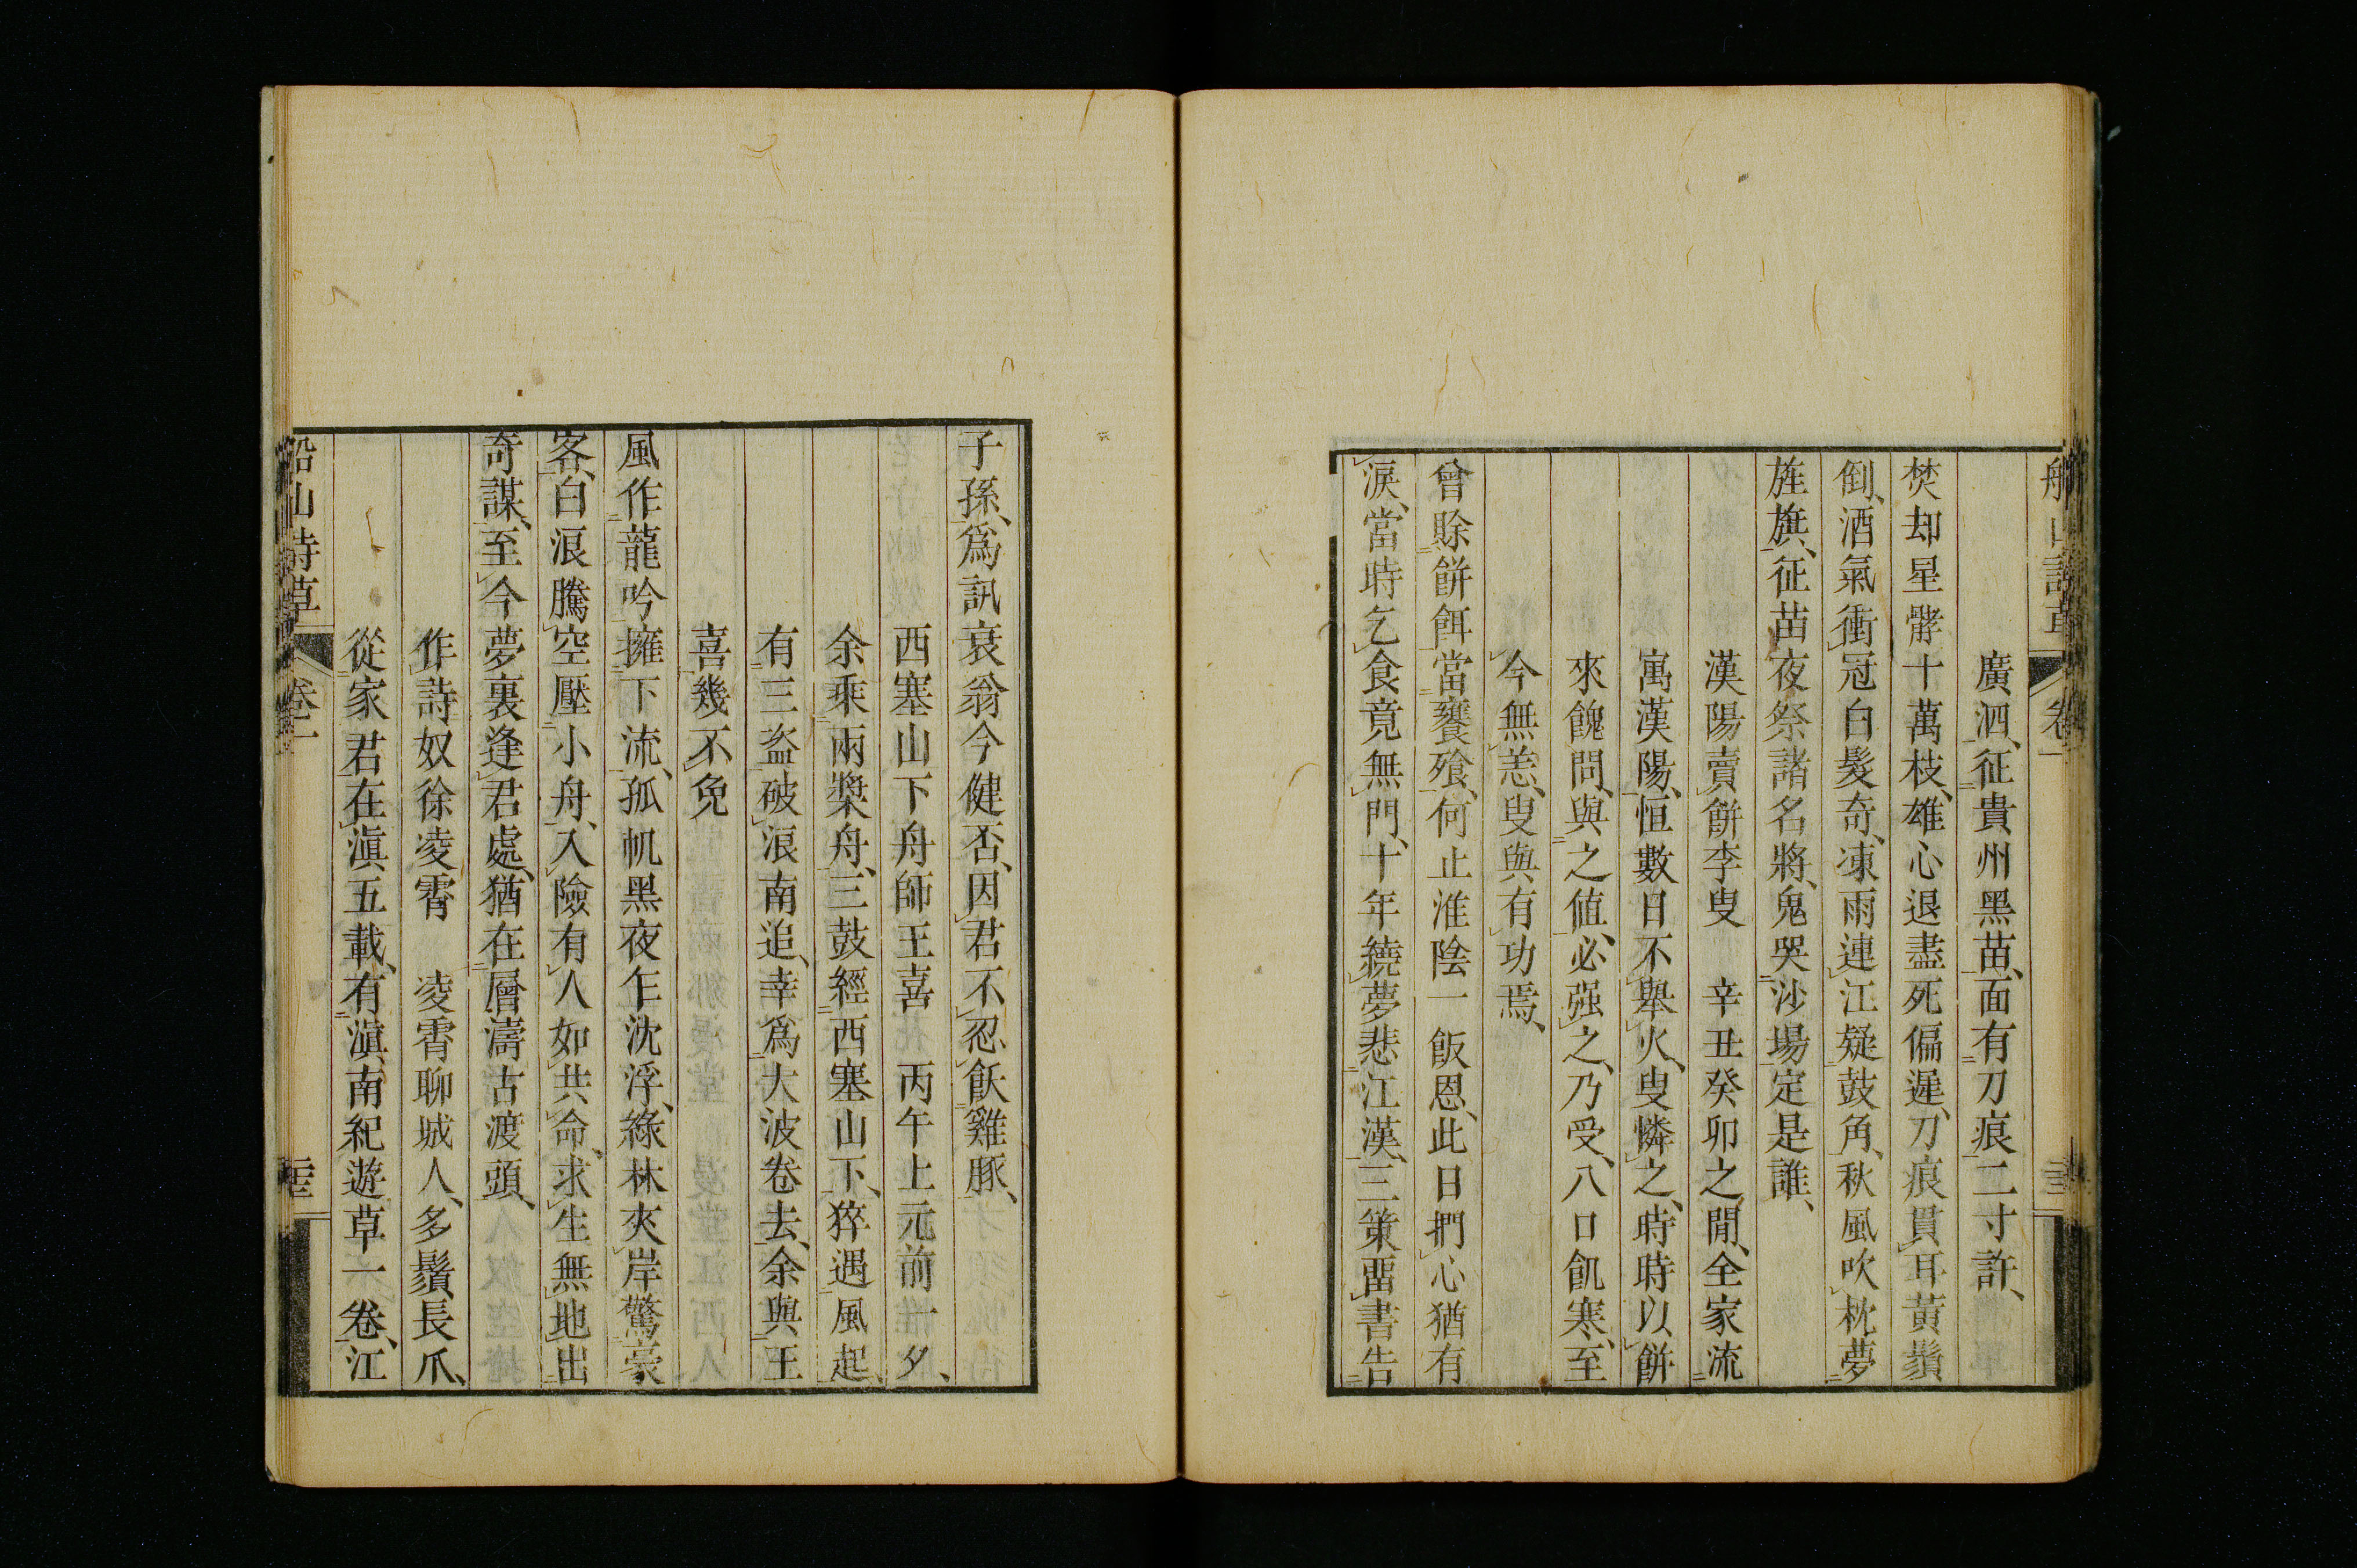 船山詩草 卷一
廣泗、征貴州黑苗、面有刀痕二寸許、
焚却星旄十萬枝、雄心退盡死偏遲、刀痕貫耳黃鬚
倒、酒氣衝冠白髮奇、凍雨連江疑鼓角、秋風吹枕夢
旌旗、征苗夜祭諸名將、鬼哭沙場定是誰、
漢陽賣餅李叟 辛丑癸卯之閒、全家流
寓漢陽、恒數日不舉火、叟憐之、時時以餅
來餽問、與之値、必强之、乃受、八口飢寒、至
今無恙、叟與有功焉、
曾賒餅餌當饔飱、何止淮陰一飯恩、此日捫心猶有
淚、當時乞食竟無門、十年繞夢悲江漢、三策畱書告
子孫、爲訊衰翁今健否、因君不忍飫雞豚、
西塞山下舟師王喜 丙午上元前一夕、
余乘兩槳舟、三鼓經西塞山下、猝遇風起、
有三盜破浪南追、幸爲大波卷去、余與王
喜幾不免
風作龍吟擁下流、孤帆黑夜乍沈浮、綠林夾岸驚豪
客、白浪騰空壓小舟、入險有人如共命、求生無地出
奇謀、至今夢裏逢君處、猶在層濤古渡頭、
作詩奴徐凌霄 凌霄聊城人、多鬚長爪、
從家君在滇五載、有滇南紀遊草一卷、江
船山詩草 卷一